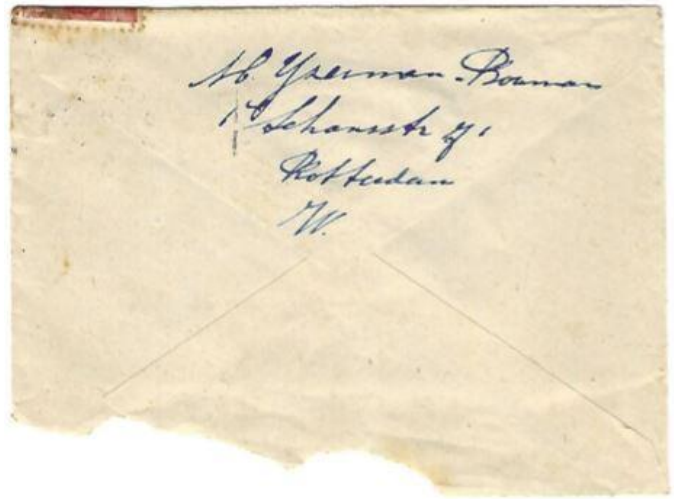 M. Yzerman-Bouman
1e Schansstr
Rotterdam
W.